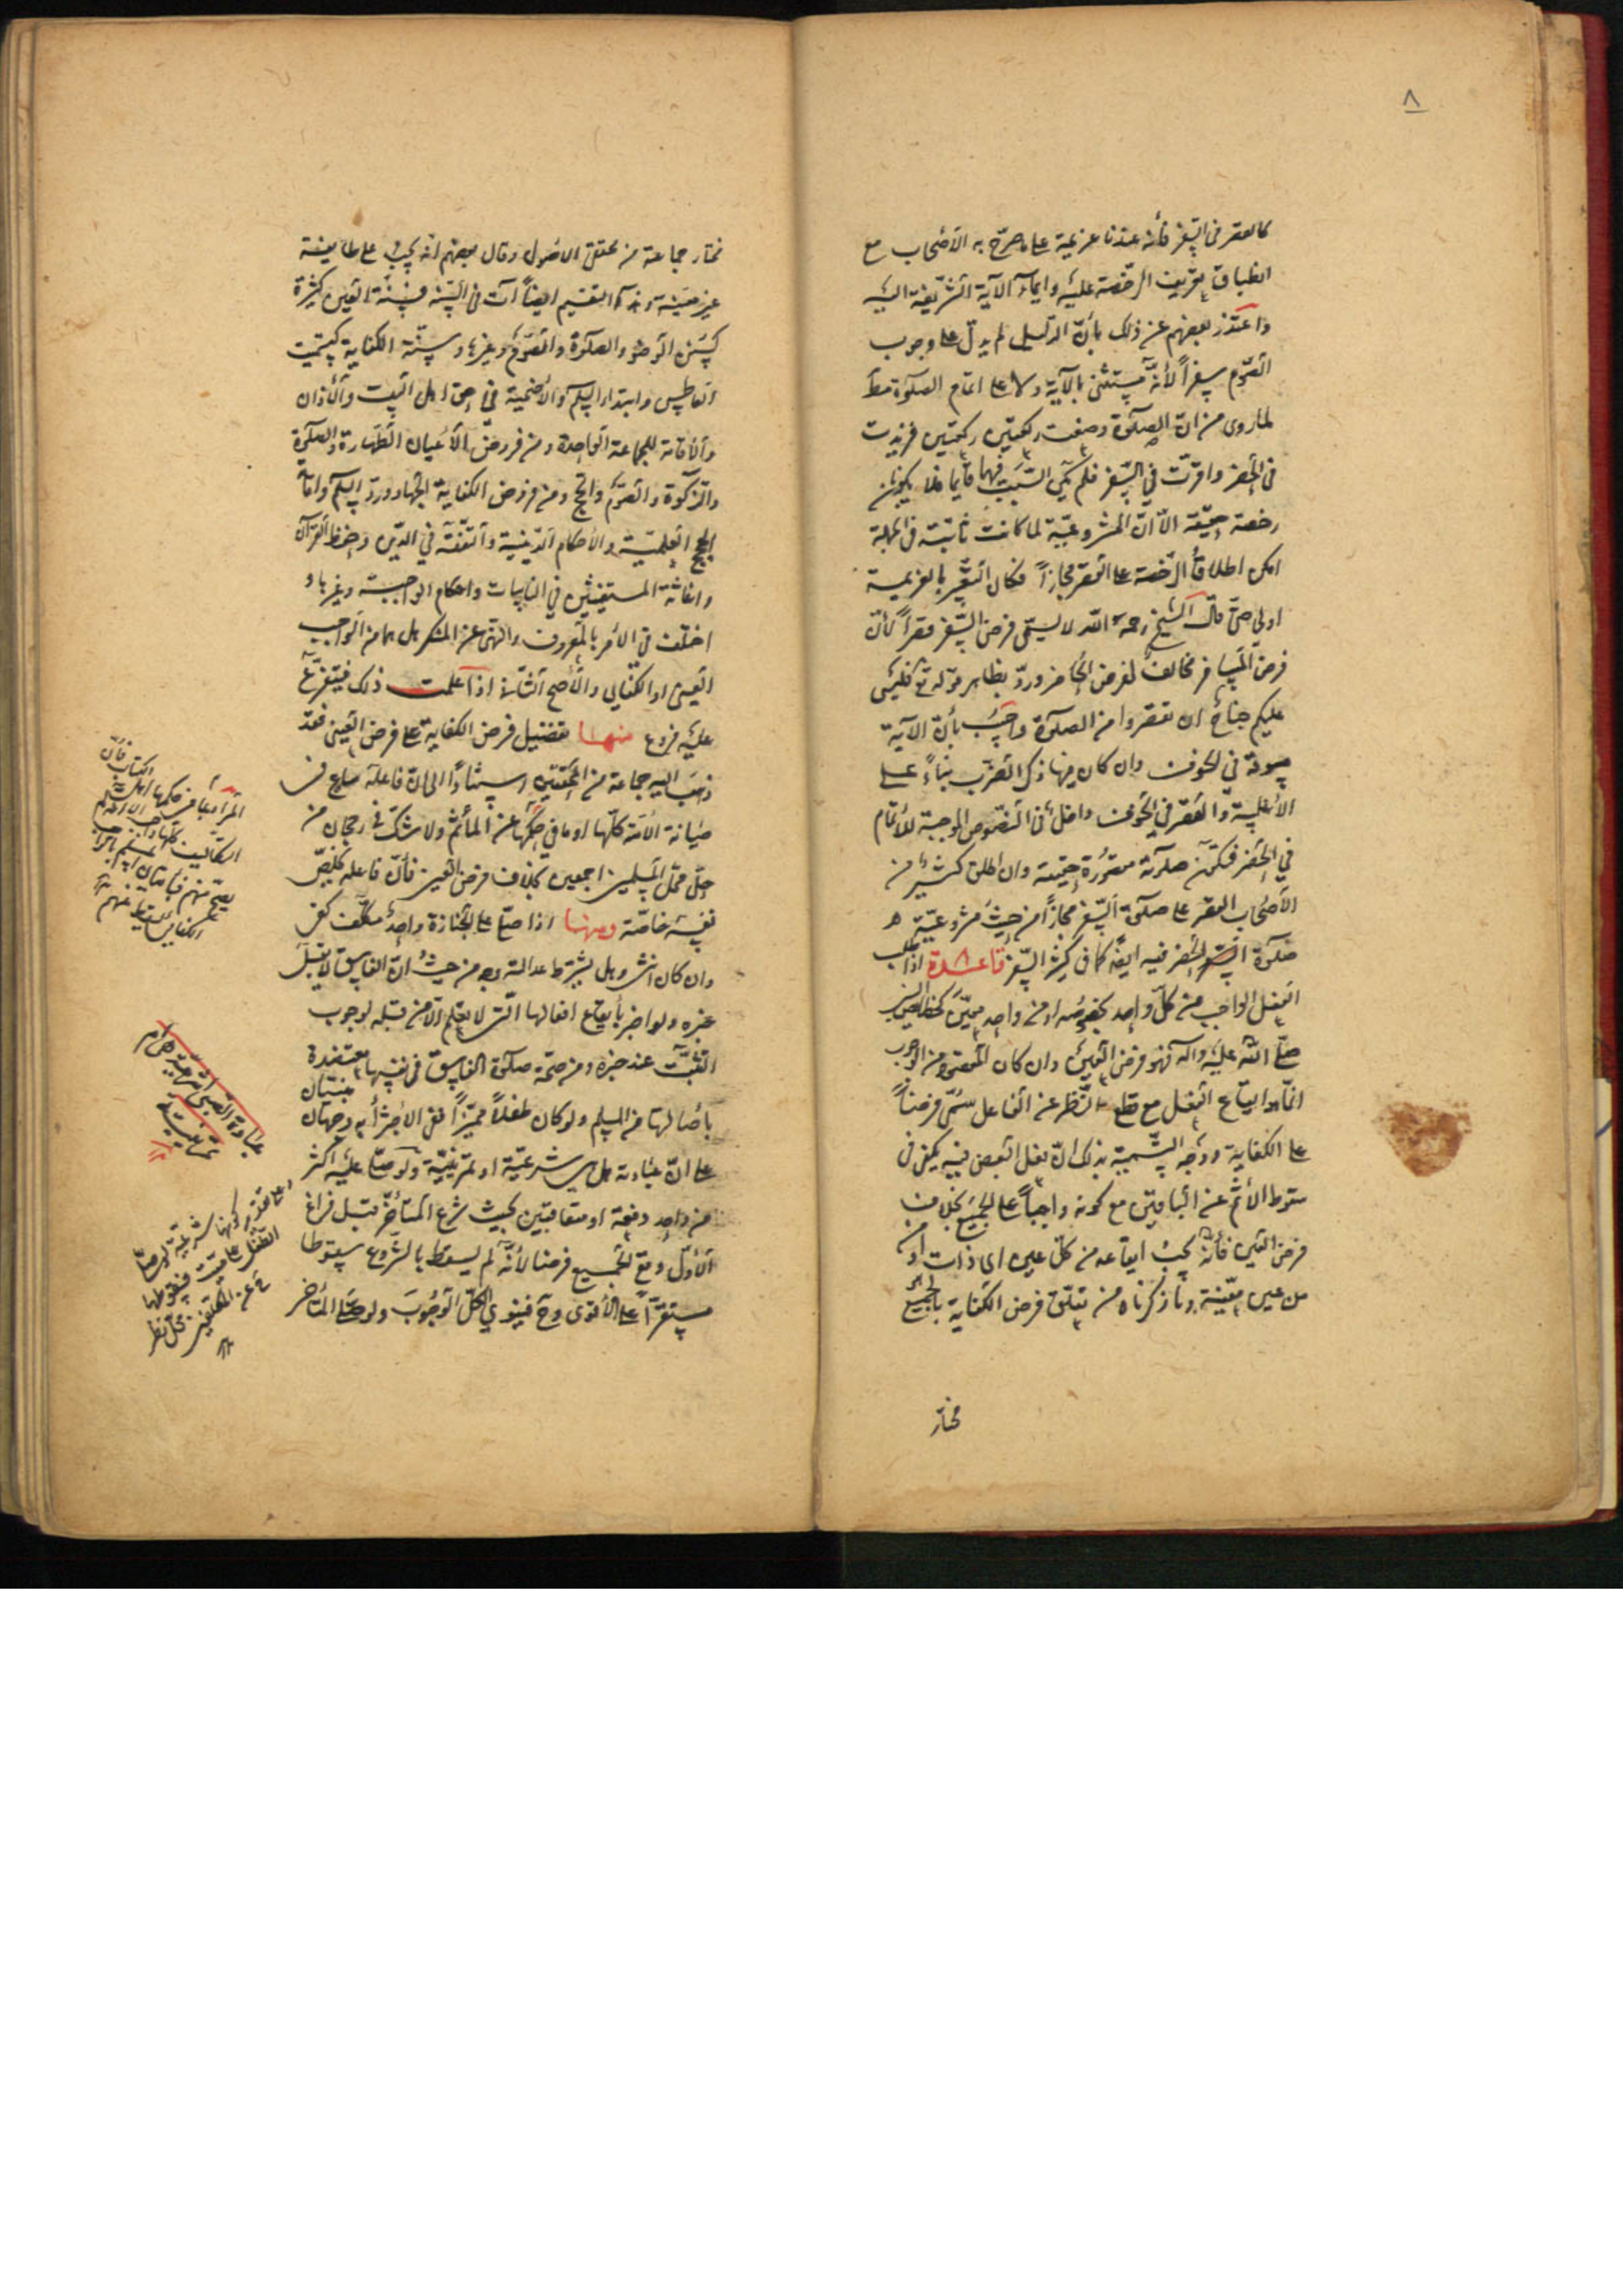 ٨
كالقصر في السفر فأنه عندنا عزيمة على ما صرّح به الأصحاب مع
انطباق تعريف الرّخصة عليه وايماء الآية الشّريفة اليه
واعتذر بعضهم عن ذلك بأنّ الدّليل لم يدلّ على وجوب
الصّوم سفراً لأنّه مستثنى بالآية ولا على اتمام الصلوة
لما روى من انّ الصلوة وضعت ركعتين ركعتين فزيدت
في الحضر واقرّت في السّفر فلم يكن السّبب فيهما قايما فلا يكونان
رخصة حقيقة الّا انّ المشروعيّة لما كانت ثابتة في الجملة
امكن اطلاق الرّخصة على القصر مجازاً فكان التعبير بالعزيمة
اولى حتى قال الشيخ رحمه الله لا يسمّى فرض السّفر قصراً لأنّ
فرض المسافر مخالف لفرض الحاضر وردّ بظاهر قوله تع فليس
عليكم جناح ان تقصروا من الصلوة واجيب بأنّ الآية
مسوقة في الخوف وان كان فيها ذكر الضّرب بناءً على
الأغلبية والقصر في الخوف داخل في النّصوص الموجبة للأتمام
في الحضر فتكون صلوته مقصورة حقيقة وان اطلق كثير من
الأصحاب القصر على صلوة السّفر مجازاً من حيث مشروعيّة
صلوة الحضر فيه ايضاً كما في كثير السّفر قاعدة اذا طلب
الفعل الواجب من كلّ واحد بخصوصه او من واحد معيّن كخصائص النبي
صلّى الله عليه وآله فهو فرض العين وان كان المقصود من الوجوب
انّما هو ايقاع الفعل مع قطع النّظر عن الفاعل سُمّى فرضاً
على الكفاية ووجه التّسمية بذلك انّ فعل البعض فيه يكفى في
سقوط الأثم عن الباقين مع كونه واجباً على الجميع بخلاف
فرض العين فأنّه يجب ايقاعه من كلّ عين اى ذات او من
عين معيّنة وما ذكرناه من تعلّق فرض الكفاية بالجميع
مختار
مختار جماعة من محققى الاصول وقال بعضهم انّه يجب على طايفة
غير معينة وهذا التقسيم ايضاً آت في السّنة فسنّة العين كثيرة
كسنن الوضوء والصلوة والصّوم وغيرها وسنّة الكفاية كتسميت
العاطس وابتداء السلم والأضحية في حق اهل البيت والأذان
والأقامة للجماعة الواحدة ومن فروض الأعيان الطّهارة والصلوة
والزكوة والصّوم والحج ومن فروض الكفاية الجهاد وردّ السلم واقامة
الحجج العلميّة والأحكام الدّينية والتفقّه في الدّين وحفظ القرآن
واغاثة المستغيثين في النايبات واحكام الواجبة وغيرها و
اختلف في الأمر بالمعروف والنّهى عن المنكر هل هما من الواجب
العينى او الكفائى والأصح الثّانى اذا علمت ذلك فيتفرّع
عليه فروع منها تفضيل فرض الكفاية على فرض العين فقد
ذهب اليه جماعة من المحققين استناداً الى انّ فاعله ساع في
صيانة الأمّة كلّها او ما في حكمها عن المأثم ولا شكّ في رجحان من
حلّ محلّ المسلمين اجمعين بخلاف فرض العين فأنّ فاعله يخلّص
نفسه خاصّة ومنها اذا صلّى على الجنازة واحد مكلّف كفى
وان كان انثى وهل يشترط عدالته وجه من حيث انّ الفاسق لا يقبل
خبره ولو اخبر بأيقاع افعالها الّتى لا تعلم الّا من قبله لوجوب
التّثبّت عند خبره ومن صحّة صلوة الفاسق في نفسها معتضدة
بأصالتها من المسلم ولو كان طفلاً مميّزاً ففى الاجتزأ به وجهان مبنيّان
على انّ عبادته هل هى شرعيّة او تمرينيّة ولو صلّى عليه اكثر
من واحد دفعة او متعاقبين بحيث شرع المتأخّر قبل فراغ
الأوّل وقع الجميع فرضا لأنّه لم يسقط بالشروع سقوطا
مستقرّاً على الأقوى وح فينوي الكلّ الوجوب ولو صلّى المتأخر
المراد بما في حكمها اهل
الكتاب فأنّ
عبادة الصبى شرعية او
تمرينية